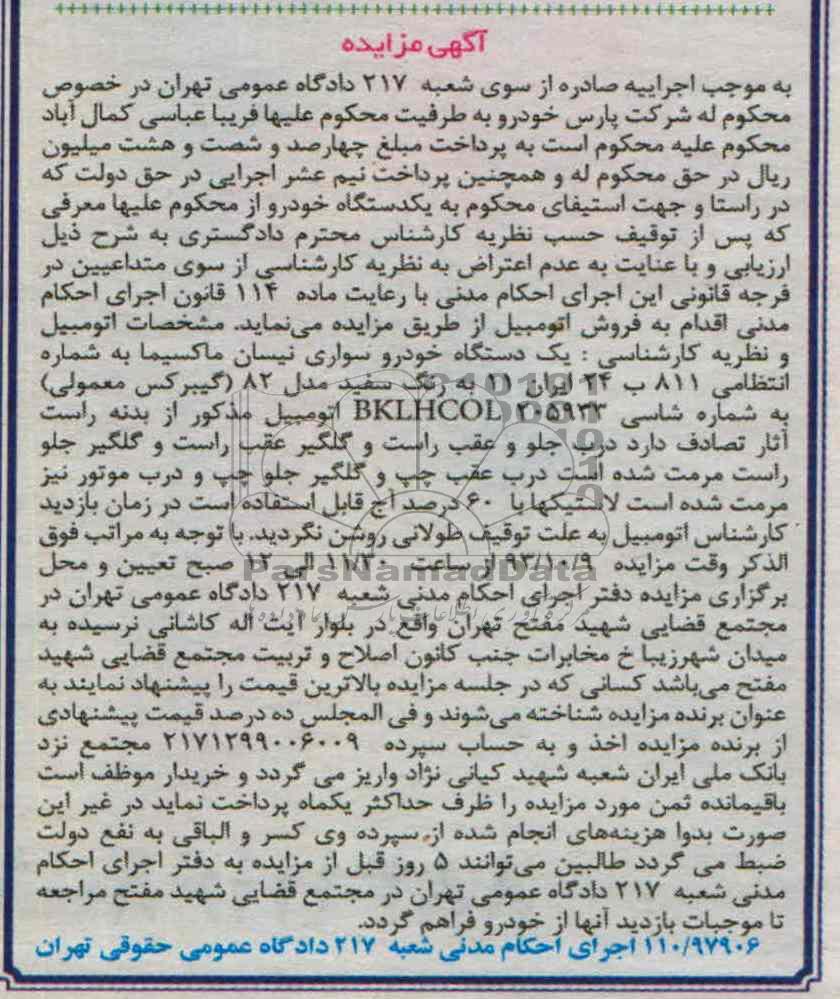 آگهی مزایده
به موجب اجراییه صادره از سوی شعبه ۲۱۷ دادگاه عمومی تهران در خصوص
محکوم له شرکت پارس خودرو به طرفیت محکوم علیها فریبا عباسی کمال آباد
محکوم علیه محکوم است به پرداخت مبلغ چهارصد و شصت و هشت میلیون
ریال در حق محکوم له و همچنین پرداخت نیم عشر اجرایی در حق دولت که
در راستا و جهت استیفای محکوم به یکدستگاه خودرو از محکوم علیها معرفی
که پس از توقیف حسب نظریه کارشناس محترم دادگستری به شرح ذیل
ارزیابی و با عنایت به عدم اعتراض به نظریه کارشناسی از سوی متداعیین در
فرجه قانونی این اجرای احکام مدنی با رعایت ماده ۱۱۴ قانون اجرای احکام
مدنی اقدام به فروش اتومبیل از طریق مزایده می‌نماید. مشخصات اتومبیل
و نظریه کارشناسی : یک دستگاه خودرو سواری نیسان ماکسیما به شماره
انتظامی ۸۱۱ ب ۲۴ ایران ۱۱ به رنگ سفید مدل ۸۲ (گیربکس معمولی)
به شماره شاسی BKLHCOL ۲۰۵۹۳۳ اتومبیل مذکور از بدنه راست
آثار تصادف دارد درب جلو و عقب راست و گلگیر عقب راست و گلگیر جلو
راست مرمت شده است درب عقب چپ و گلگیر جلو چپ و درب موتور نیز
مرمت شده است لاستیکها با ۶۰ درصد آج قابل استفاده است در زمان بازدید
کارشناس اتومبیل به علت توقیف طولانی روشن نگردید. با توجه به مراتب فوق
الذکر وقت مزایده ۹۳/۱۰/۹ از ساعت ۱۱/۳۰ الی ۱۲ صبح تعیین و محل
برگزاری مزایده دفتر اجرای احکام مدنی شعبه ۲۱۷ دادگاه عمومی تهران در
مجتمع قضایی شهید مفتح تهران واقع در بلوار آیت اله کاشانی نرسیده به
میدان شهرزیبا خ مخابرات جنب کانون اصلاح و تربیت مجتمع قضایی شهید
مفتح می‌باشد کسانی که در جلسه مزایده بالاترین قیمت را پیشنهاد نمایند به
عنوان برنده مزایده شناخته می‌شوند و فی المجلس ده درصد قیمت پیشنهادی
از برنده مزایده اخذ و به حساب سپرده ۲۱۷۱۲۹۹۰۰۶۰۰۹ مجتمع نزد
بانک ملی ایران شعبه شهید کیانی نژاد واریز می گردد و خریدار موظف است
باقیمانده ثمن مورد مزایده را ظرف حداکثر یکماه پرداخت نماید در غیر این
صورت بدوا هزینه‌های انجام شده از سپرده وی کسر و الباقی به نفع دولت
ضبط می گردد طالبین می‌توانند ۵ روز قبل از مزایده به دفتر اجرای احکام
مدنی شعبه ۲۱۷ دادگاه عمومی تهران در مجتمع قضایی شهید مفتح مراجعه
تا موجبات بازدید آنها از خودرو فراهم گردد.
۱۱۰/۹۷۹۰۶ اجرای احکام مدنی شعبه ۲۱۷ دادگاه عمومی حقوقی تهران
ParsNamadData